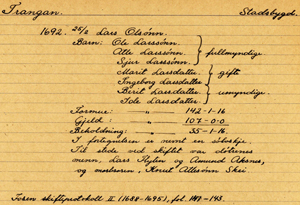 Trangan. Stadsbygd.
1692. 25/2 Lars Olsönn.
Barn: Ole Larssönn.
Atle Larssönn. } fullmyndige.
Sjur Larssönn.
Marit Larsdatter. } gifte
Ingeborg Larsdatter.
Berit Larsdatter. } umyndige.
Tole Larsdatter.
Formue: — „ — 142-1-16
Gjeld: — „ — 107-0-0
Beholdning: — „ — 35-1-16.
I fortegnelsen er nevnt en sölvskje.
Til stede ved skiftet var dötrenes
menn, Lars Flyten og Amund Aksnes,
og morbroren, Knut Atlesönn Skei
Fosen skifteprotokoll II (1688-1695), fol. 142-143.